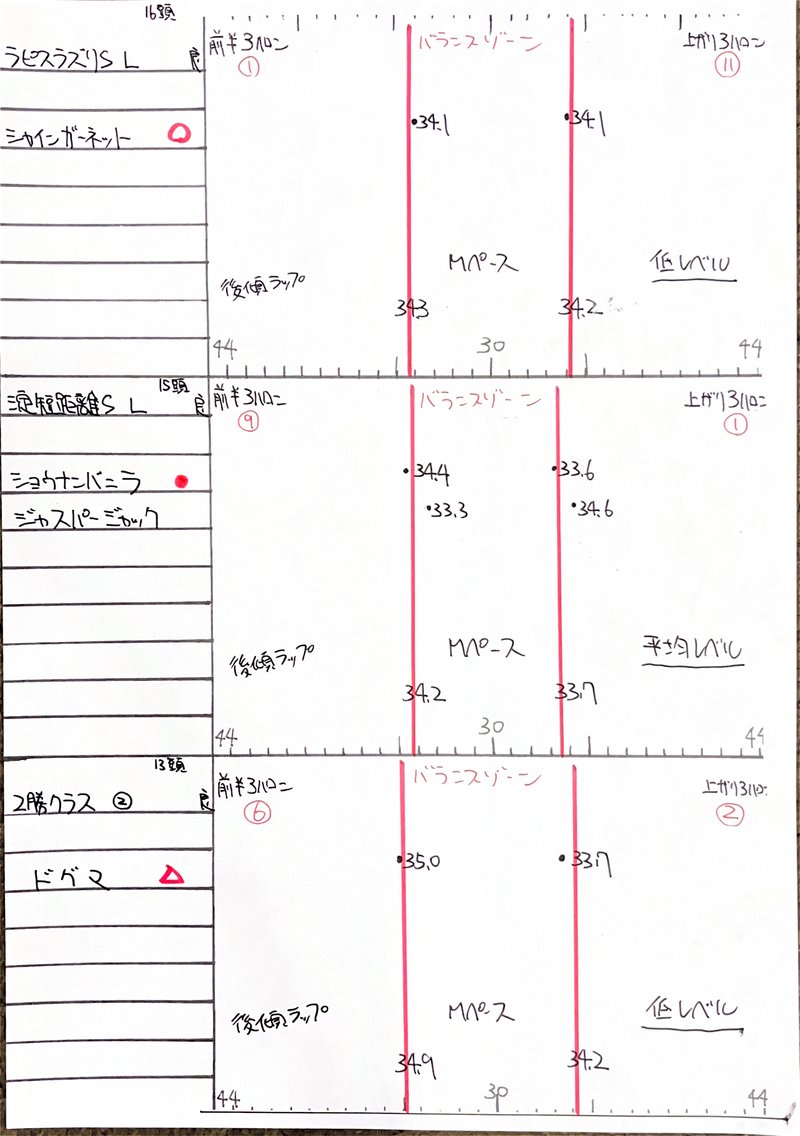 16頭
ラピスラズリS L 良
前半3ハロン バランスゾーン 上がり3ハロン
① ⑪
シャインガーネット ○ 34.1 34.1
後傾ラップ Mペース 低レベル
34.3 34.2
44 30 44
15頭
淀短距離S L 良
前半3ハロン バランスゾーン 上がり3ハロン
⑨ ①
ショウナンバニラ ● 34.4 33.6
ジャスパージャック 33.3 34.6
後傾ラップ Mペース 平均レベル
34.2 33.7
44 30 44
13頭
2勝クラス ② 良
前半3ハロン バランスゾーン 上がり3ハロン
⑥ ②
ドグマ △ 35.0 33.7
後傾ラップ Mペース 低レベル
34.9 34.2
44 30 44